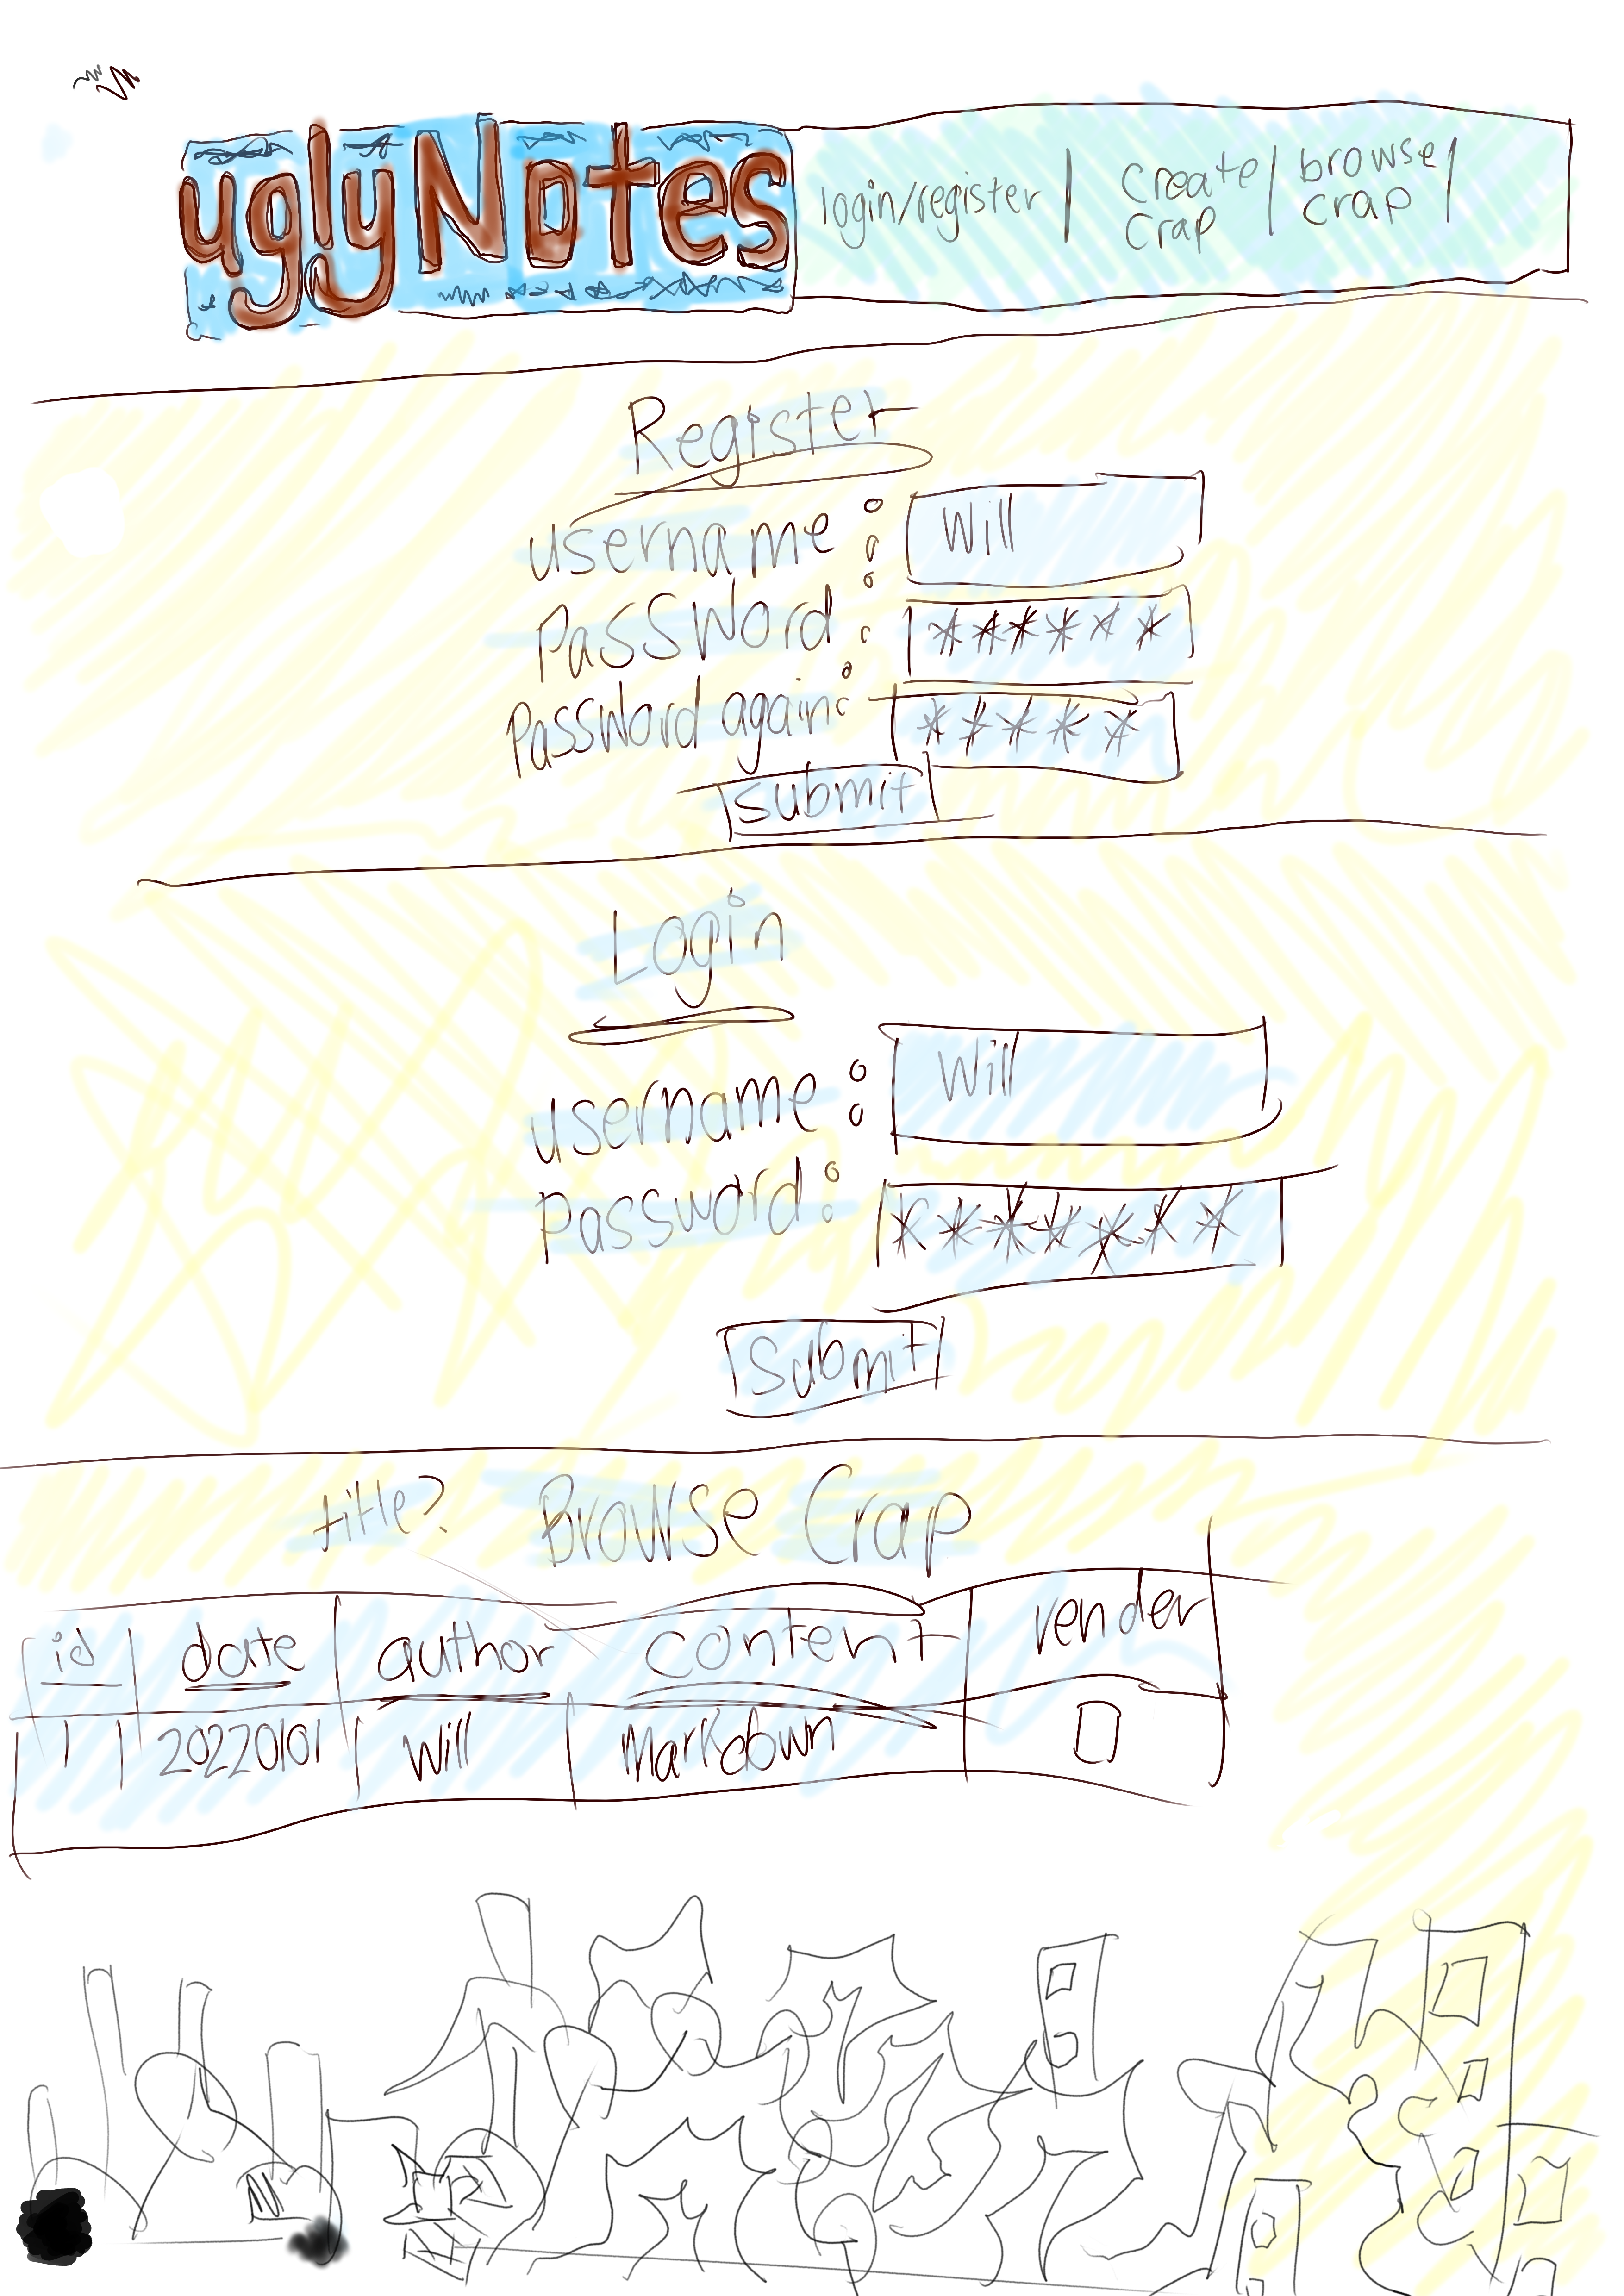 uglyNotes
login/register | create crap | browse crap |
Register
username: Will
Password: ******
Password again: *****
submit
Login
username: Will
Password: *******
Submit
title? Browse Crap
id date author content render
1 20220101 Will Markdown